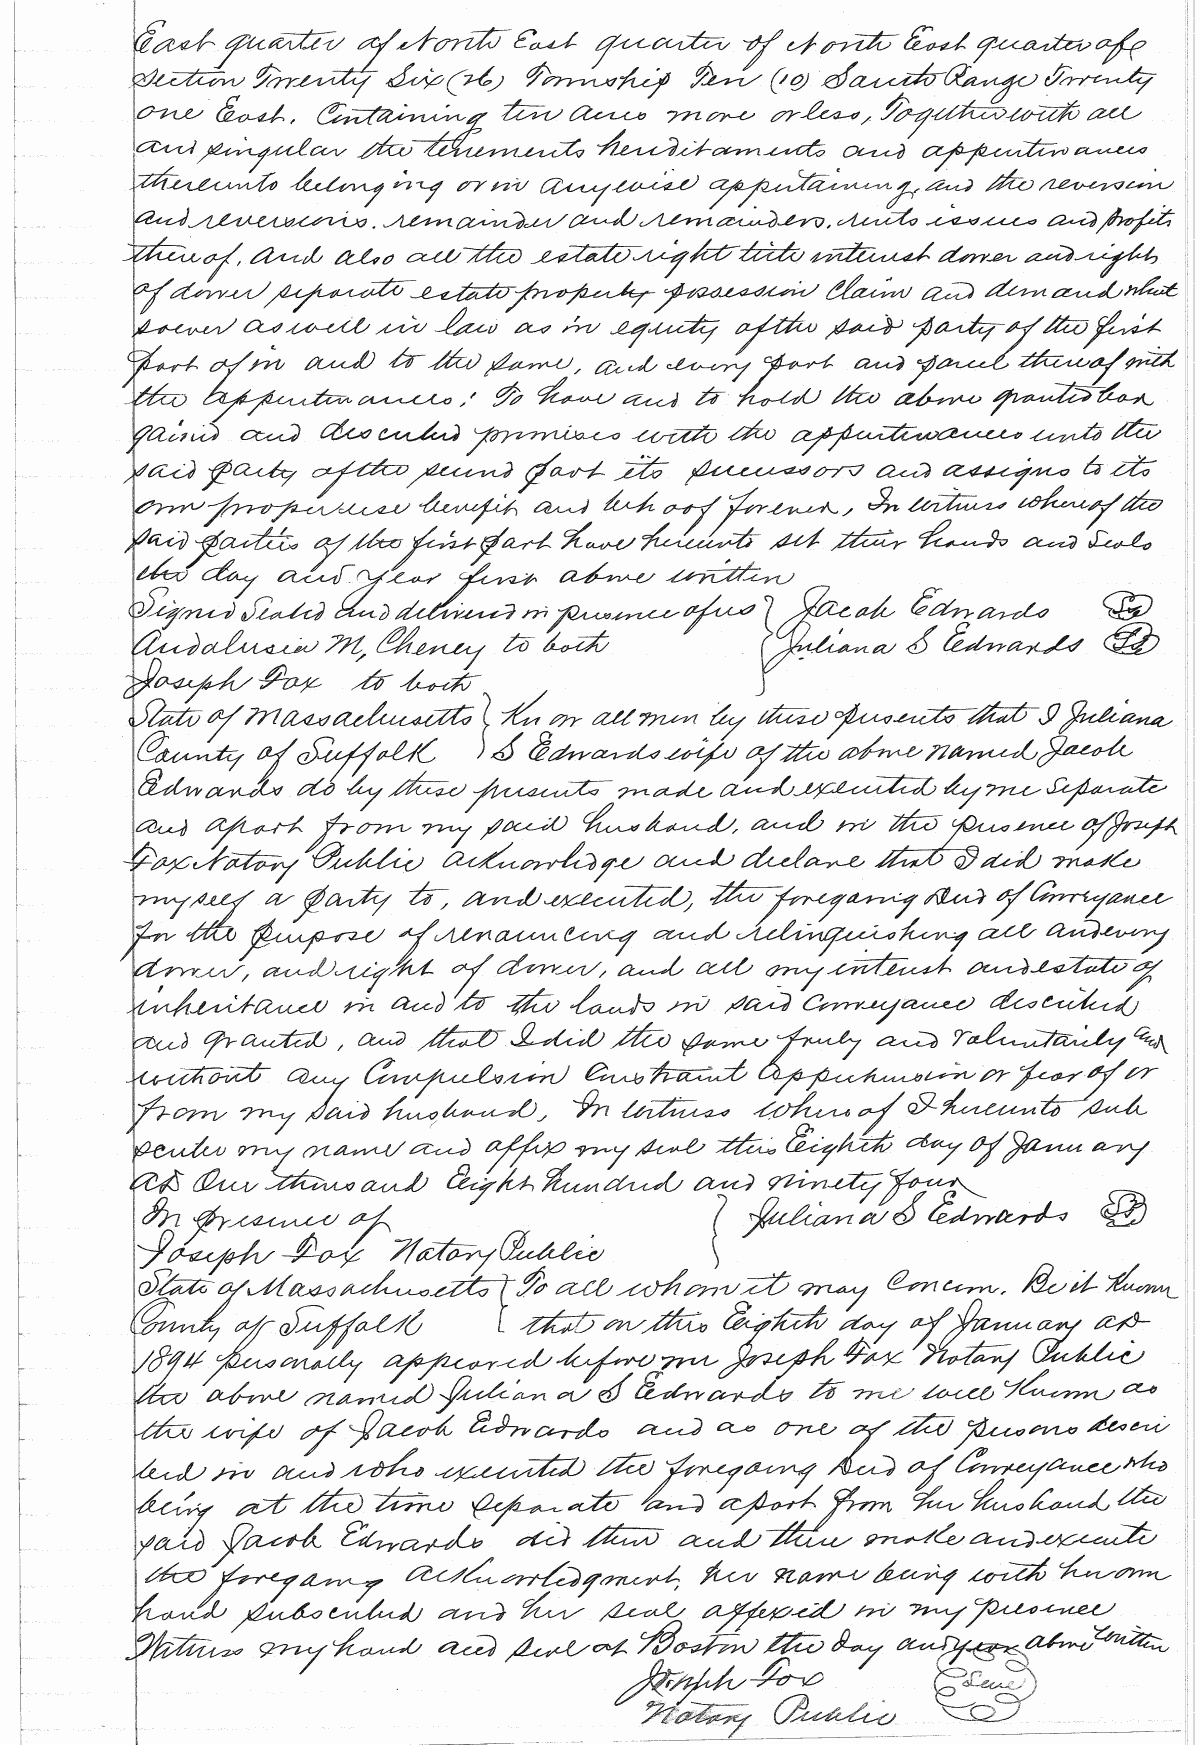 East quarter of North East quarter of North East quarter of
Section Twenty Six (26) Township Ten (10) South Range Twenty
one East. Containing ten acres more or less, Together with all
and singular the tenements hereditaments and appurtenances
thereunto belonging or in anywise appertaining, and the reversion
and reversions. remainder and remainders. rents issues and profits
thereof. And also all the estate right title interest dower and right
of dower separate estate property possession Claim and demand what
soever as well in law as in equity of the said party of the first
part of in and to the same, and every part and parcel thereof with
the appurtenances: To have and to hold the above granted bar
gained and described premises with the appurtenances unto the
said party of the second part its successors and assigns to its
own proper use benefit and behoof forever, In witness whereof the
said parties of the first part have hereunto set their hands and Seals
the day and year first above written
Signed Sealed and delivered in presence of us } Jacob Edwards Sl
Andalusia M, Cheney to both { Juliana S Edwards Sl
Joseph Fox to both
State of Massachusetts } Know all men by these presents that I Juliana
County of Suffolk } S Edwards wife of the above named Jacob
Edwards do by these presents made and executed by me Separate
and apart from my said husband, and in the presence of Joseph
Fox Notary Public Acknowledge and declare that I did make
myself a party to, and executed, the foregoing Deed of Conveyance
for the purpose of renouncing and relinquishing all and every
dower, and right of dower, and all my interest and estate of
inheritance in and to the lands in said Conveyance described
and granted, and that I did the same freely and voluntarily and
without any Compulsion Constraint apprehension or fear of or
from my said husband, In witness whereof I hereunto sub
scribe my name and affix my seal this Eighth day of January
AD One thousand Eight hundred and ninety four
In presence of } Juliana S Edwards Sl
Joseph Fox Notary Public
State of Massachusetts { To all whom it may Concern. Be it Known
County of Suffolk { that on this Eighth day of January AD
1894 personally appeared before me Joseph Fox Notary Public
the above named Juliana S Edwards to me well Known as
the wife of Jacob Edwards and as one of the persons descri
bed in and who executed the foregoing Deed of Conveyance who
being at the time separate and apart from her husband the
said Jacob Edwards did then and there make and execute
the foregoing Acknowledgment, her name being with her own
hand subscribed and her seal affixed in my presence
Witness my hand and seal at Boston the day and year above written
Joseph Fox Seal
Notary Public